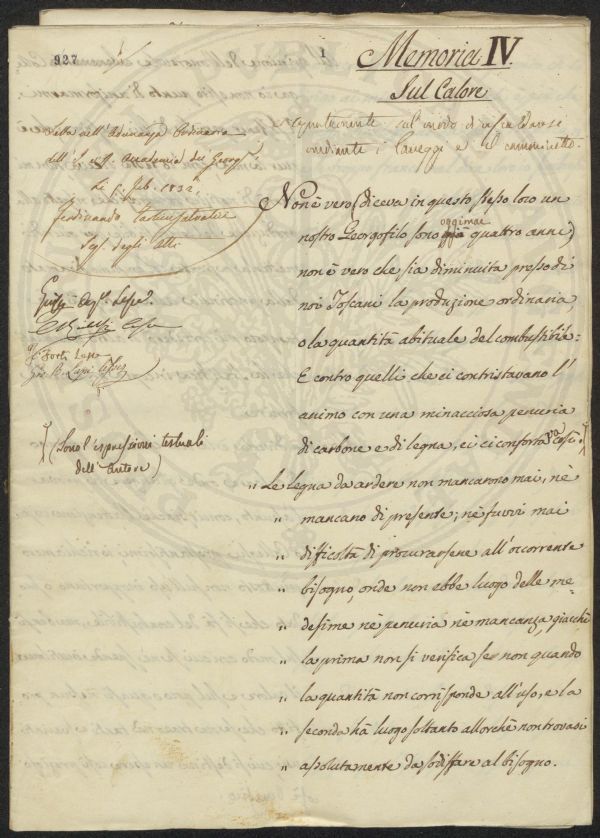 927
1
Memoria IV.
Sul Calore
Letta nell'Adunanza Ordinaria
dell' I. e R. Accademia dei Georg.
Li 5. Feb. 1832.
Ferdinando Tartini Salvatici
Seg. degli Atti
(Sono l'espressioni testuali
dell'Autore)
Non è vero (diceva in questo stesso loco un
nostro Georgofilo sono oggimai quattro anni)
non è vero che sia diminuita presso di
noi Toscani la produzione ordinaria,
o la quantità abituale del combustibile:
E contro quelli che ci contristavano l'
animo con una minacciosa penuria
di carbone e di legna, ei ci confortava così:
„ Le legna da ardere non mancarono mai, nè
„ mancano di presente; nè fuvvi mai
„ difficoltà di procurarsene all'occorrente
„ bisogno, onde non ebbe luogo delle me-
„ desime nè penuria nè mancanza, giacchè
„ la prima non si verifica se non quando
„ la quantità non corrisponde all'uso, e la
„ seconda hà luogo soltanto allorchè non trovasi
„ assolutamente da sodisfare al bisogno.